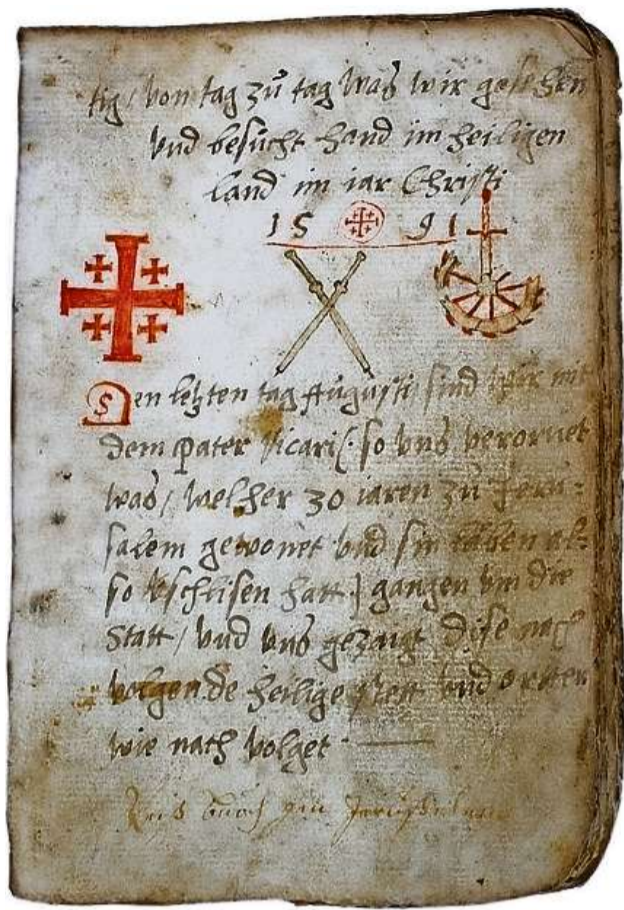 tig / von tag zů tag was wir gesehen
vnd besůcht hand im heiligen
land im iar Christi
15 91
Den letzten tag Augusti sind wir mit
dem Pater Vicari (so vns verornet
was / welher 30 iaren zů Jeru:
salem gewonet vnd sin läben al:
so bschlisen hatt) gangen vm die
Statt / vnd vns gezaigt dise nach
volgende heilige stett vnd ortter
wie nach volget
buoch